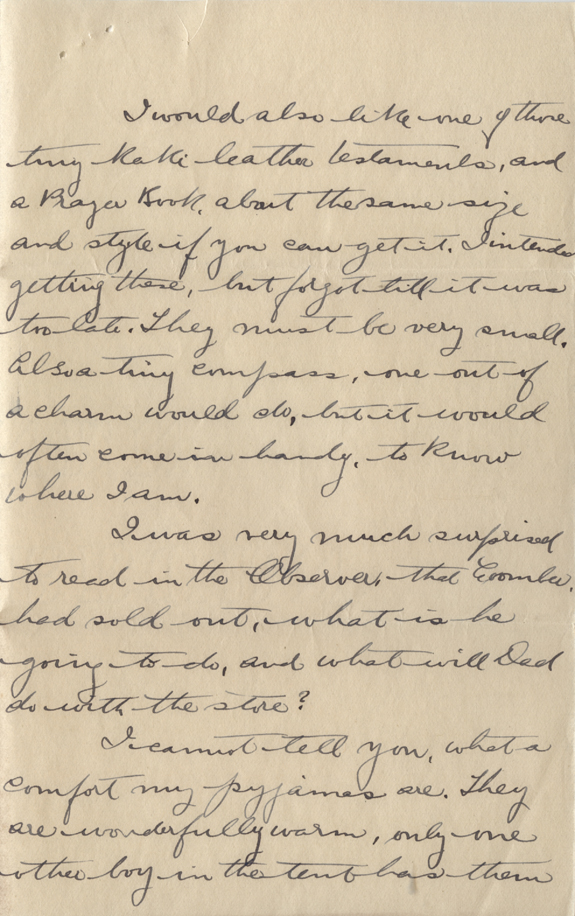 I would also like one of those
tiny KaKi leather testaments, and
a Prayer Book, about the same size
and style if you can get it. I intended
getting these, but forgot till it was
too late. They must be very small.
Also a tiny compass, one out of
a charm would do, but it would
often come in handy, to know
where I am.
I was very much surprised
to read in the Observer, that
had sold out, what is he
going to do, and what will Dad
do with the store?
I cannot tell you, what a
comfort my pyjamas are. They
are wonderfully warm, only one
other boy in the tent has them